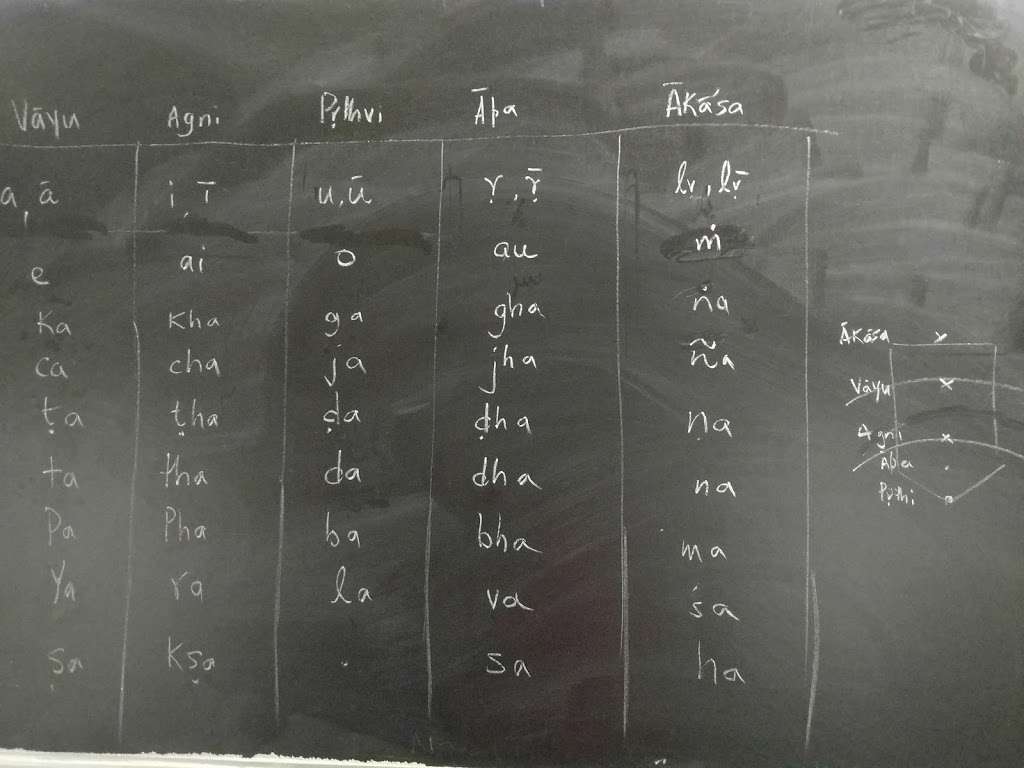 Vāyu Agni Pṛthvi Āpa Ākāśa
a, ā i, ī u, ū ṛ, ṝ lṛ, lṝ
e ai o au ṁ
Ka Kha ga gha ṅa
ca cha ja jha ña
ṭa ṭha ḍa ḍha ṇa
ta tha da dha na
Pa Pha ba bha ma
Ya ra la va śa
ṣa Kṣa . sa ha
Ākāśa
Vāyu
Agni
Āpa
Pṛthi